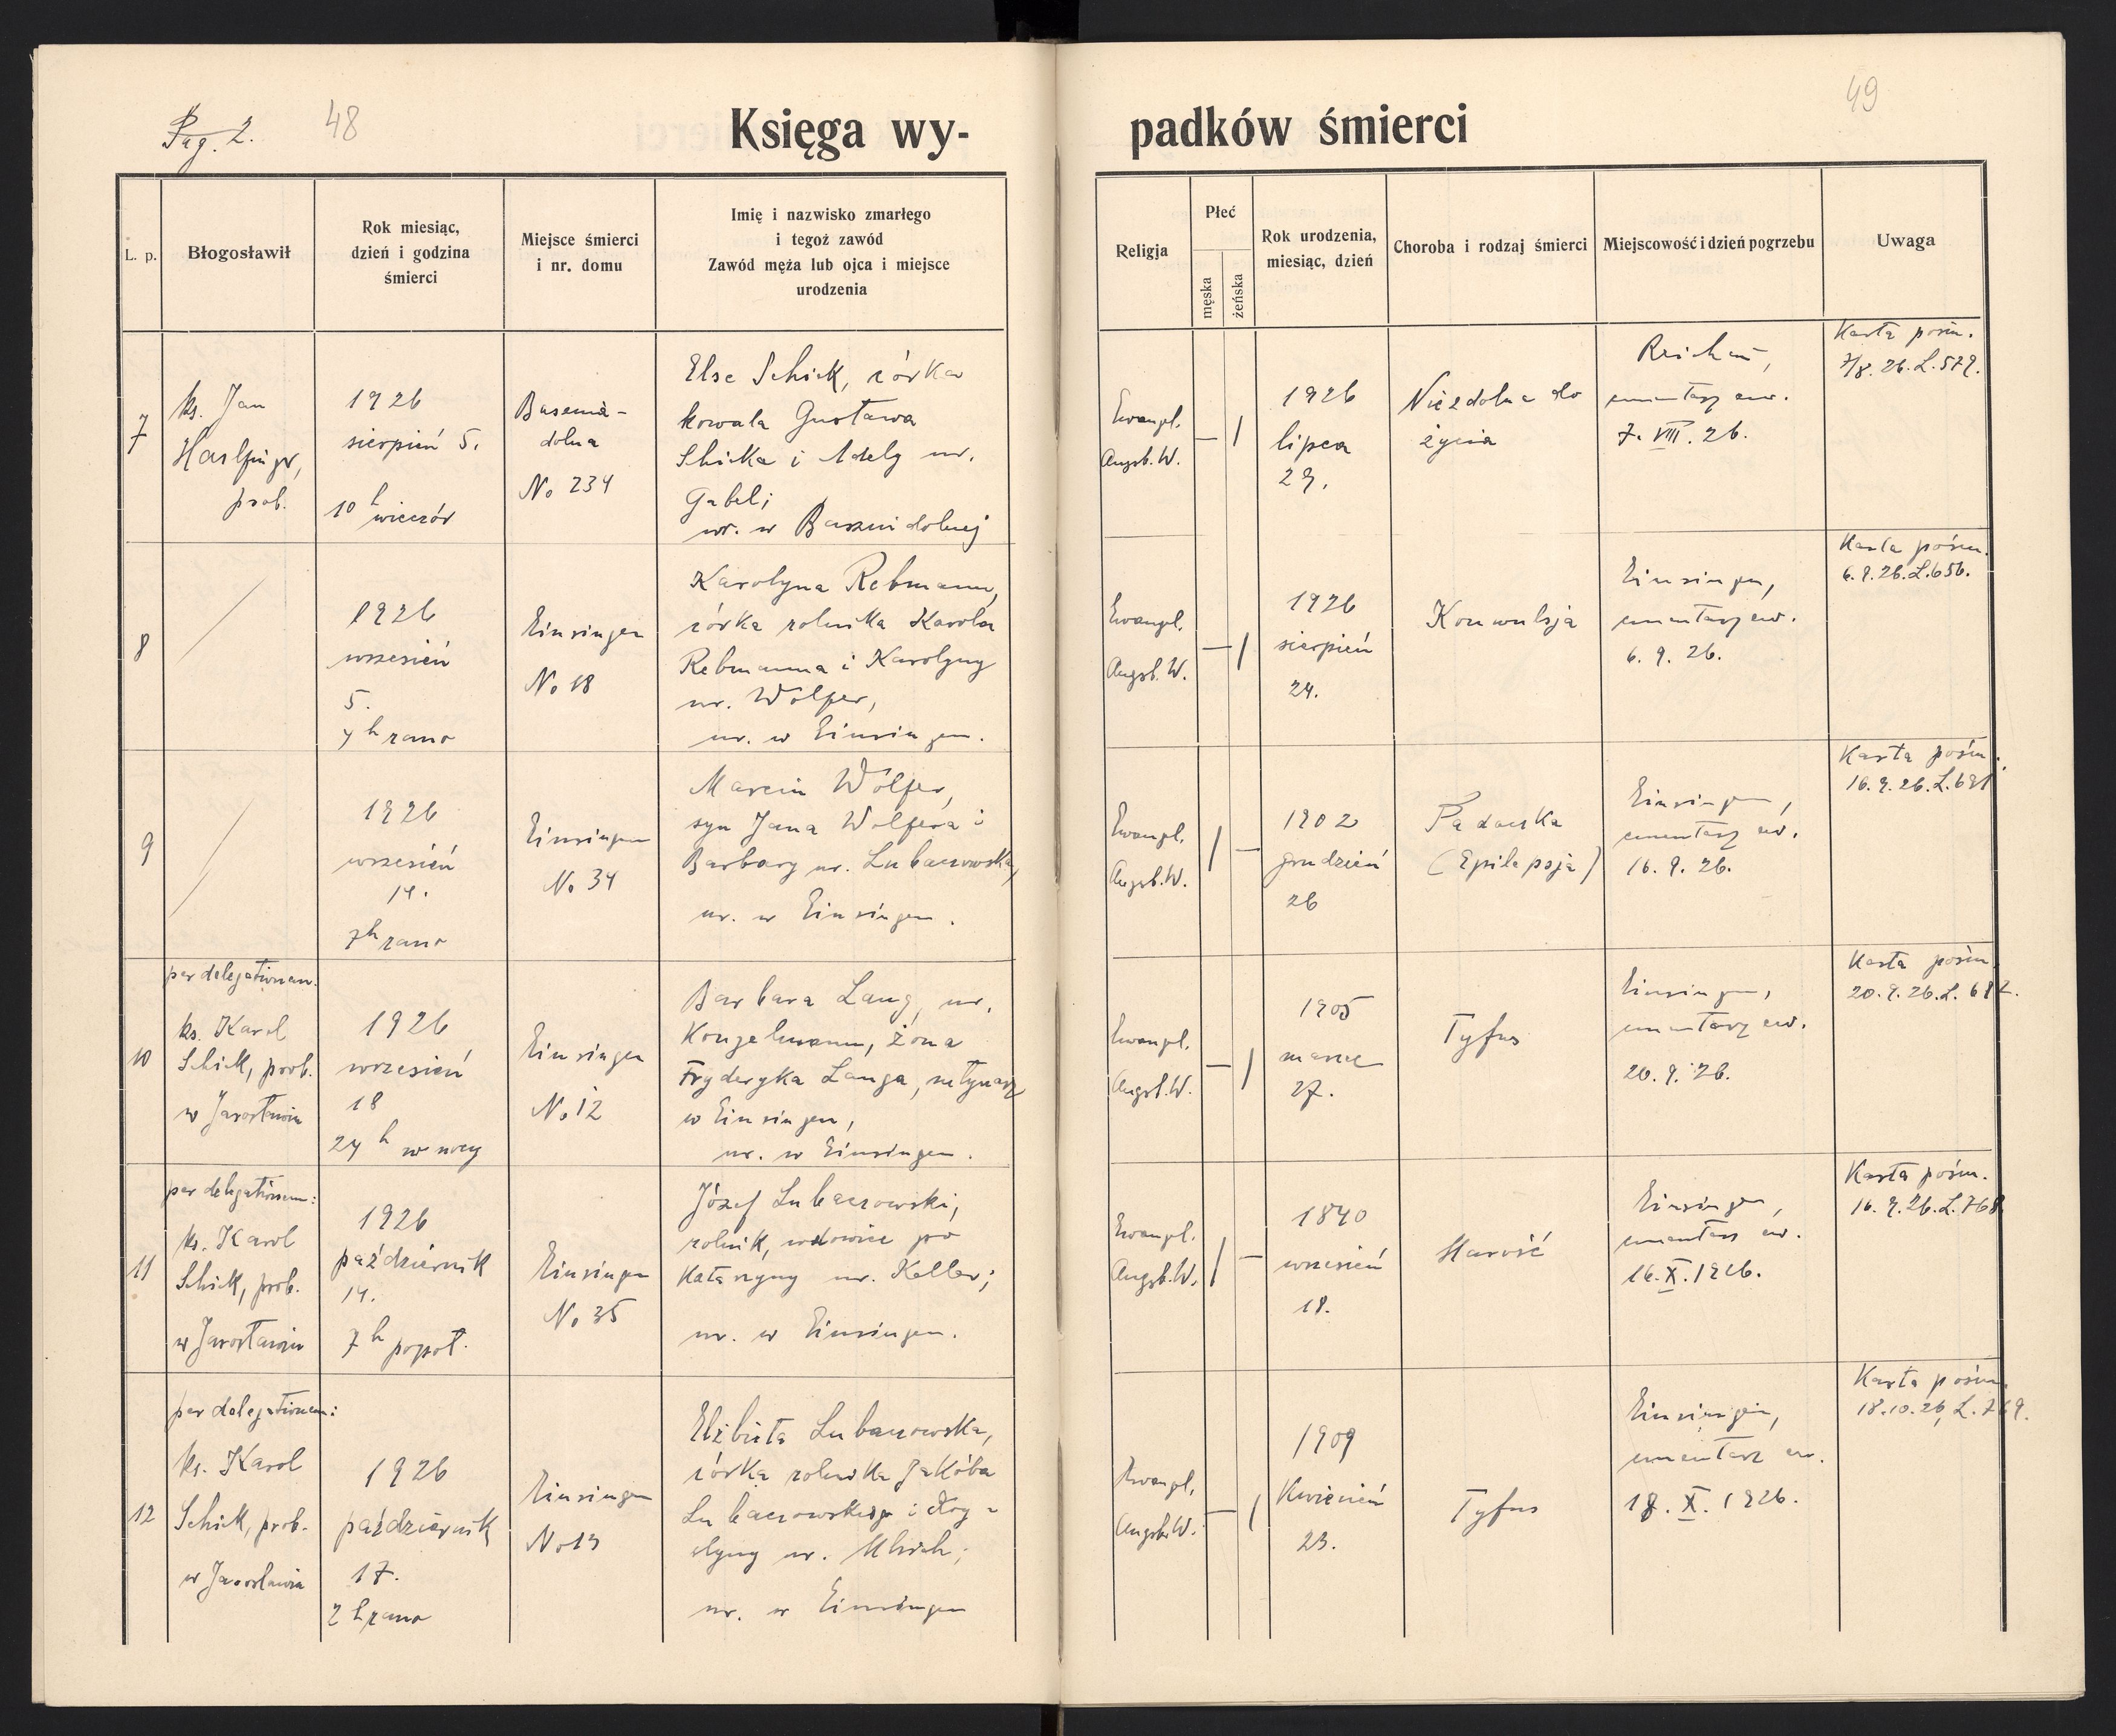 Pag. 2.
48
Księga wy-
L. p.
Błogosławił
Rok miesiąc,
dzień i godzina
śmierci
Miejsce śmierci
i nr. domu
Imię i nazwisko zmarłego
i tegoż zawód
Zawód męża lub ojca i miejsce
urodzenia
7
ks. Jan
prob.
1926
sierpień 5.
10 h wieczór
dolna
No 234
Else Schick, córka
kowala Gustawa
Schicka i Adely ur.
Gabel;
ur. w Baszni dolnej
8
1926
wrzesień
5.
4 h rano
Einsingen
No 18
Karolyna Rebmann,
córka rolnika Karola
Rebmanna i Karolyny
ur. Wolfer,
ur. w Einsingen.
9
1926
wrzesień
14.
7 h rano
Einsingen
No 34
Marcin Wolfer,
syn Jana Wolfera i
Barbary ur. Lubaczowska,
ur. w Einsingen.
per delegationem:
10
ks. Karol
Schick, prob.
w Jarosławiu
1926
wrzesień
18
24 h w nocy
Einsingen
No 12
Barbara Lang, ur.
Kongelmann, żona
Fryderyka Langa, młynarz
w Einsingen,
ur. w Einsingen.
per delegationem:
11
ks. Karol
Schick, prob.
w Jarosławiu
1926
październik
14.
7 h popoł.
Einsingen
No 35
Józef Lubaczowski,
rolnik, wdowiec po
Katarzyny ur. Keller;
ur. w Einsingen.
per delegationem:
12
ks. Karol
Schick, prob.
w Jarosławiu
1926
październik
17.
2 h rano
Einsingen
No 13
Elżbieta Lubaczowska,
córka rolnika Jakóba
Lubaczowskiego i
ur.
ur. w Einsingen
49
padków śmierci
Religja
Płeć
męska
żeńska
Rok urodzenia,
miesiąc, dzień
Choroba i rodzaj śmierci
Miejscowość i dzień pogrzebu
Uwaga
Ewangl.
Augsb. W.
— /
1926
lipca
29.
Niezdolna do
życia
cmentarz ew.
7. VIII. 26.
Karta pośm.
7/8. 26. L. 579.
Ewangl.
Augsb. W.
— /
1926
sierpień
24.
Konwulsja
Einsingen,
cmentarz ew.
6. 9. 26.
Karta pośm.
6. 9. 26. L. 656.
Ewangl.
Augsb. W.
/ —
1902
grudzień
26
Padaczka
(Epilepsja)
Einsingen,
cmentarz ew.
16. 9. 26.
Karta pośm.
16. 9. 26. L. 681
Ewangl.
Augsb. W.
— /
1905
marzec
27.
Tyfus
Einsingen,
cmentarz ew.
20. 9. 26.
Karta pośm.
20. 9. 26. L. 682.
Ewangl.
Augsb. W.
/ —
1840
wrzesień
18.
Starość
Einsingen,
cmentarz ew.
16. X. 1926.
Karta pośm.
16. 9. 26. L. 768
Ewangl.
Augsb. W.
— /
1909
Kwiecień
23.
Tyfus
Einsingen,
cmentarz ew.
18. X. 1926.
Karta pośm.
18. 10. 26, L. 769.